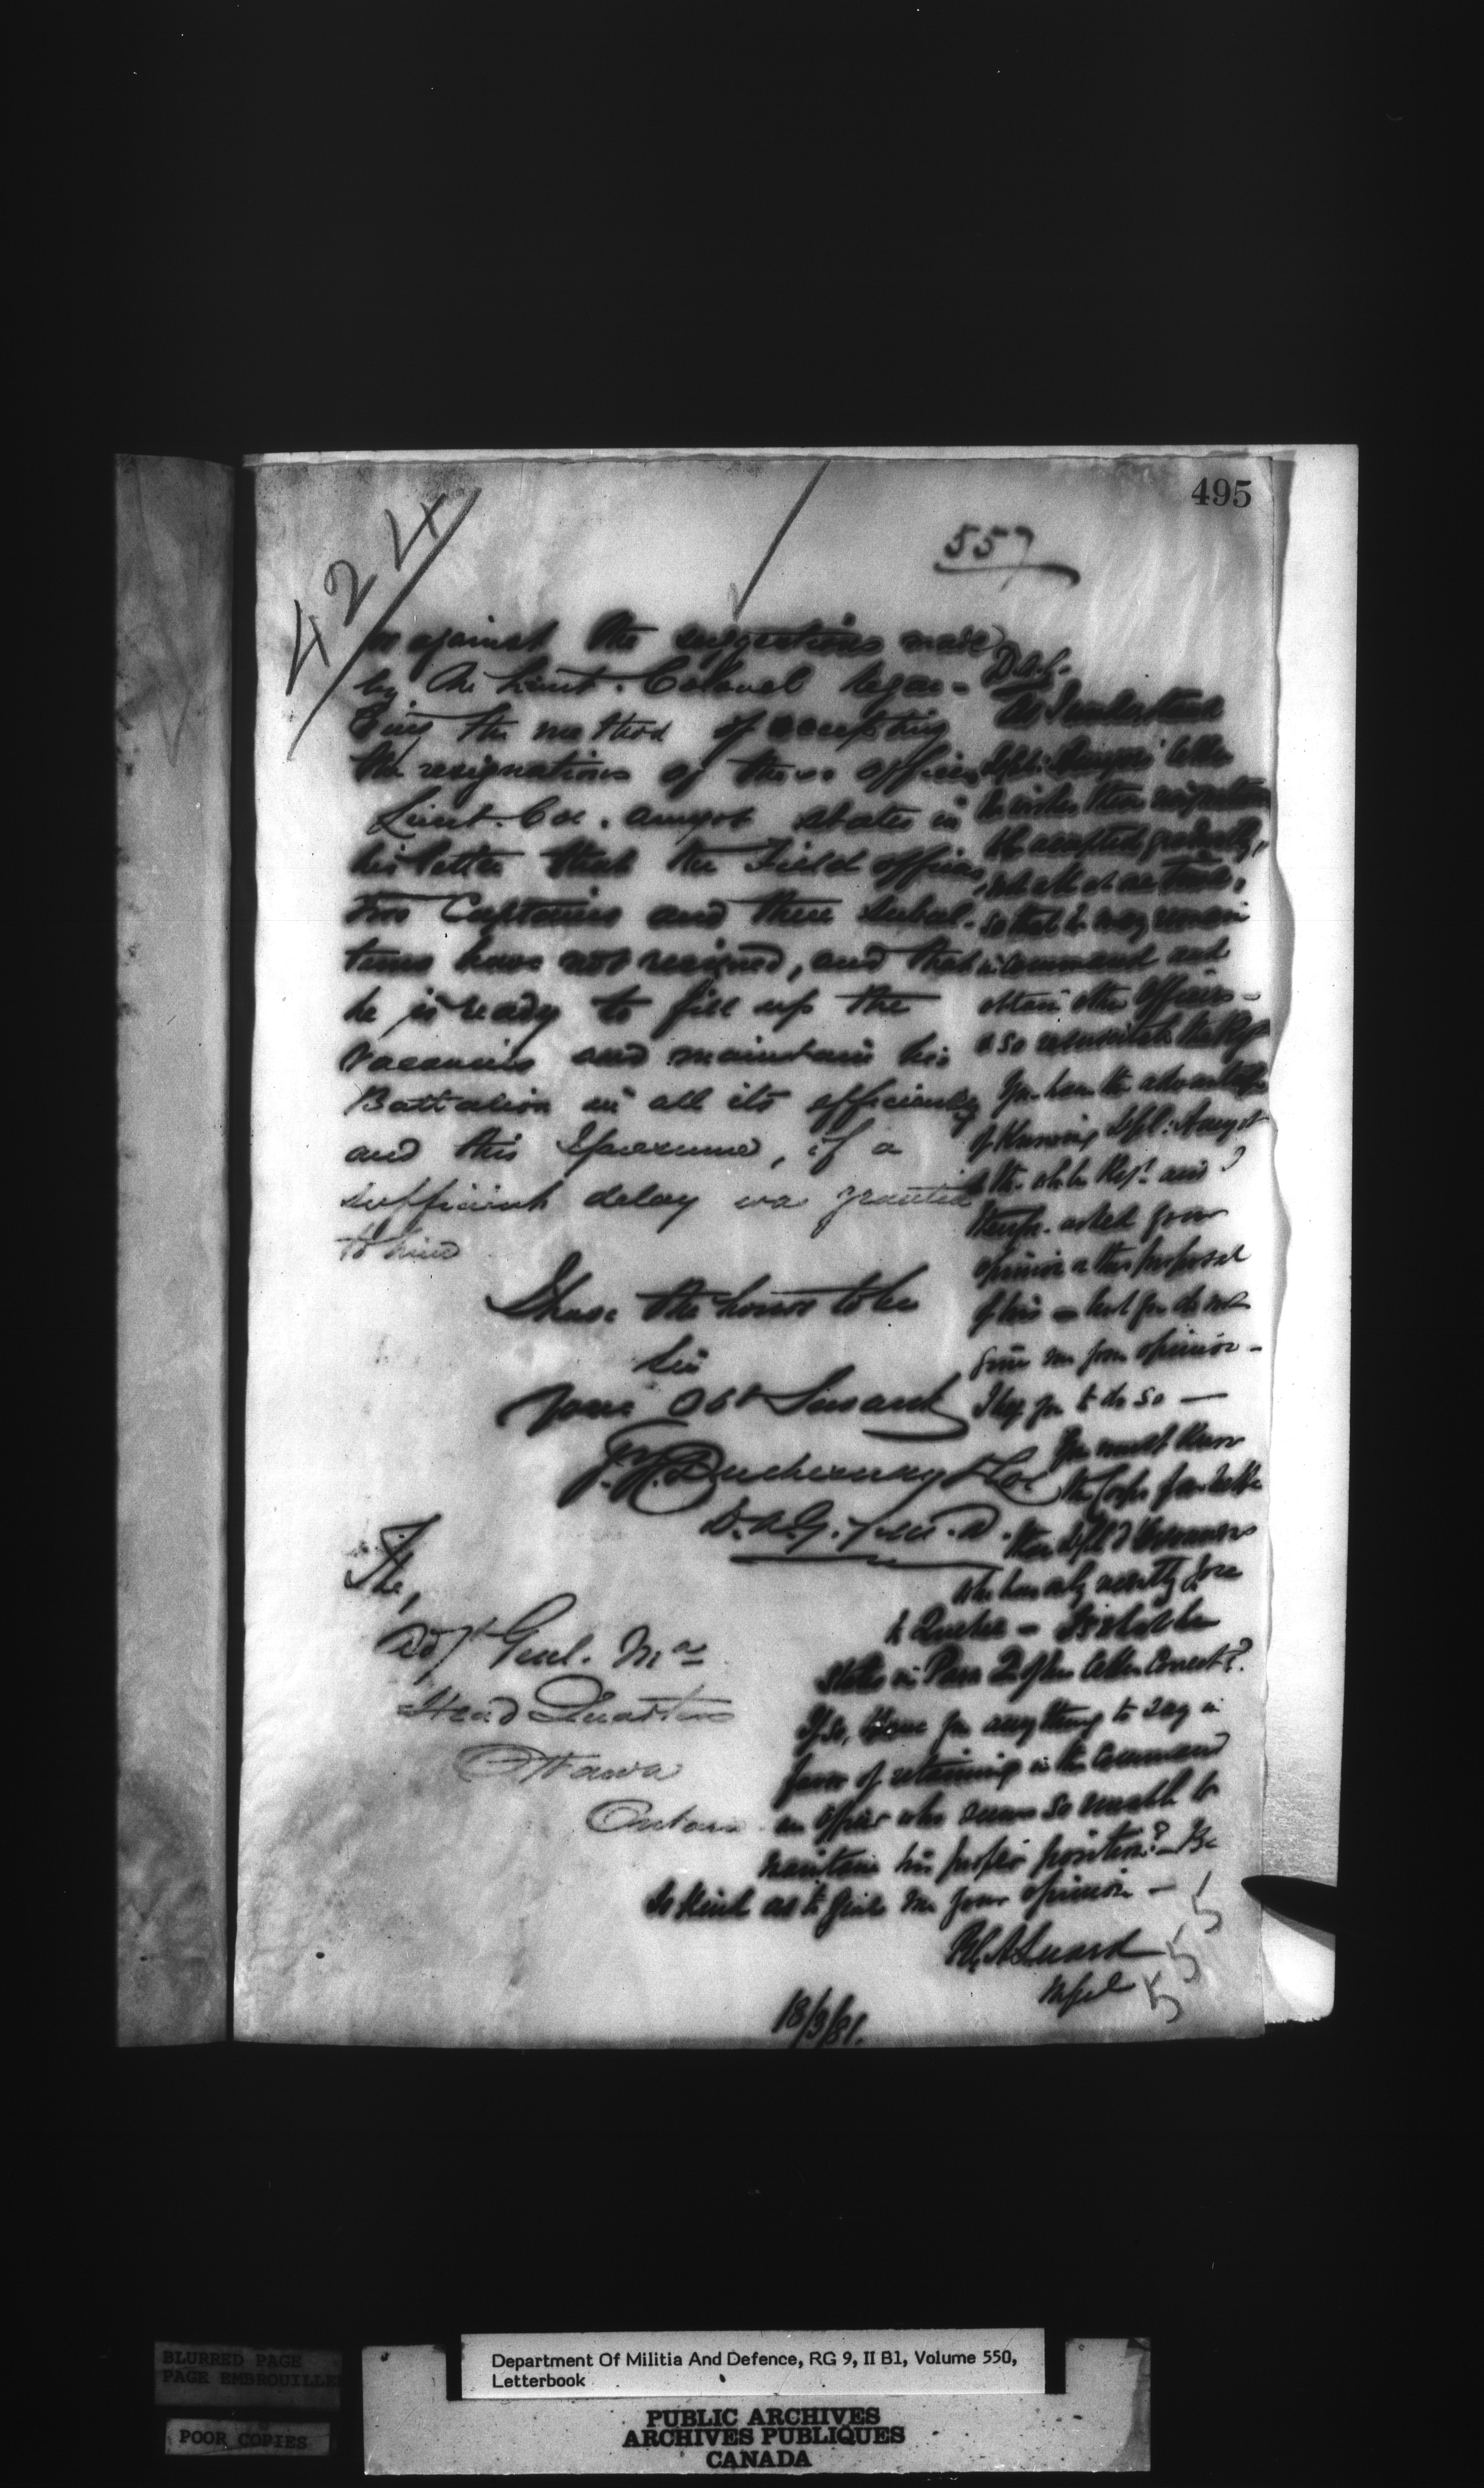 495
557
424
or against the suggestions made
by the Lieut. Colonel regar-
ding the method of accepting
the resignations of these officers
Lieut. Col. Amyot states in
his letter that the Field officers,
two Captains and three subal-
terns have not resigned, and that
he is ready to fill up the
vacancies and maintain his
Battalion in all its efficiency
and this I presume, if a
sufficient delay was granted
to him
I have the honor to be
Sir
Your Obt Servant
J. Duchesnay Lt Col
D.A.G. 7
The,
Adjt Genl. Ma
Head Quarters
Ottawa
Ontario
D.A.G.
As I understand
Amyot's letter
he wishes these resignations
be accepted gradually,
not all at one time,
so that he may remain
in command and
obtain other officers -
& so resuscitate the Regt
You have the advantage
of knowing Amyot
& the whole Regt. and I
asked your
opinion on this proposal
of his — but you do not
give me your opinion -
I beg you to do so —
You must know
the Corps far better
than
who has only recently gone
to Quebec — Is what he
states in Para 2 of his letter correct?
If so, have you anything to say in
favor of retaining in the Command
an officer who seems so unable to
maintain his proper position? - Be
so kind as to give me your opinion —
R. A. Luard
M Genl
18/3/81.
555
BLURRED PAGE
PAGE EMBROUILLE
POOR COPIES
Department Of Militia And Defence, RG 9, II B1, Volume 550,
Letterbook
PUBLIC ARCHIVES
ARCHIVES PUBLIQUES
CANADA